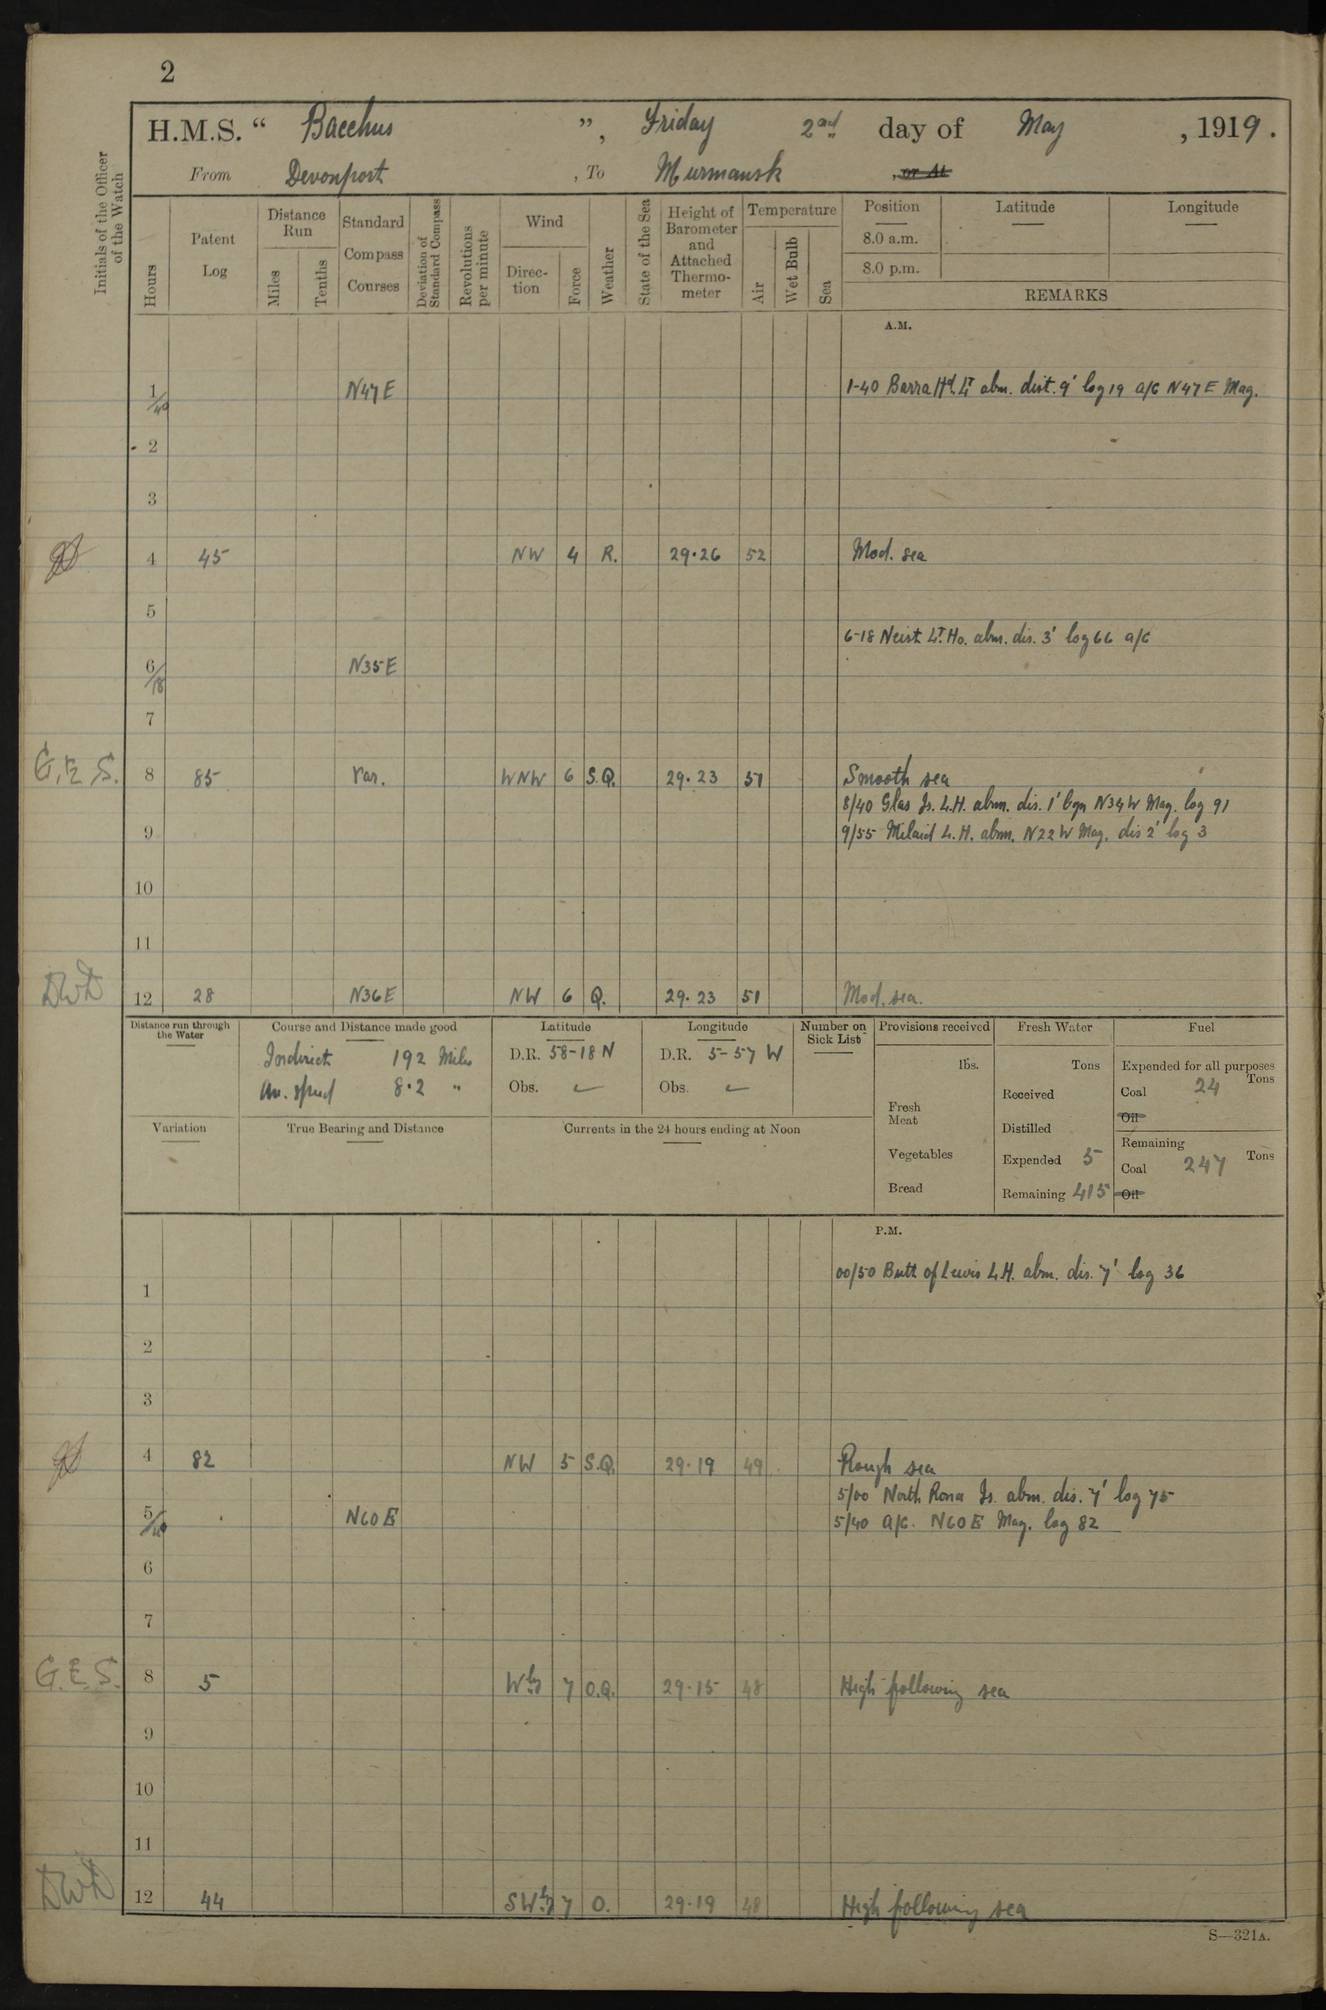 2
H.M.S. “ Bacchus ”, Friday 2nd day of May , 1919.
From Devonport , To Murmansk , or At
Initials of the Officer of the Watch
Hours
Patent Log
Distance Run
Miles
Tenths
Standard Compass Courses
Deviation of Standard Compass
Revolutions per minute
Wind
Direction
Force
Weather
State of the Sea
Height of Barometer and Attached Thermometer
Temperature
Air
Wet Bulb
Sea
Position Latitude Longitude
8.0 a.m.
8.0 p.m.
REMARKS
A.M.
1/40 N47E 1-40 Barra Hd. Lt abm. dist. 9' log 19 a/c N47E Mag.
2
3
4 45 NW 4 R. 29.26 52 Mod. sea
5
6-18 Neist Lt. Ho. abm. dis. 3' log 66 a/c
6/18 N35E
7
G.E.S. 8 85 Var. WNW 6 S.Q. 29.23 51 Smooth sea
8/40 Glas Is. L.H. abm. dis. 1' bgn N34W Mag. log 91
9 9/55 Milaid L.H. abm. N22W Mag. dis 2' log 3
10
11
DWD 12 28 N36E NW 6 Q. 29.23 51 Mod. sea.
Distance run through the Water
Course and Distance made good
Indirect 192 Miles
Av. speed 8.2 "
Latitude
D.R. 58-18 N
Obs.
Longitude
D.R. 5-57 W
Obs.
Number on Sick List
Provisions received
lbs.
Fresh Meat
Vegetables
Bread
Fresh Water
Tons
Received
Distilled
Expended 5
Remaining 415
Fuel
Expended for all purposes
Tons
Coal 24
Oil
Remaining
Tons
Coal 247
Oil
Variation
True Bearing and Distance
Currents in the 24 hours ending at Noon
P.M.
00/50 Butt of Lewis L.H. abm. dis. 7' log 36
1
2
3
4 82 NW 5 S.Q. 29.19 49 Rough sea
5/00 North Rona Is. abm. dis. 7' log 75
5/40 N60E 5/40 a/c. N60E Mag. log 82
6
7
G.E.S. 8 5 Wly 7 O.Q. 29.15 48 High following sea
9
10
11
DWD 12 44 SWly 7 O. 29.19 48 High following sea
S—321A.